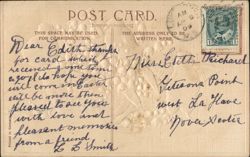 POST CARD.
THIS SPACE MAY BE USED
FOR COMMUNICATION.
THE ADDRESS ONLY TO BE
WRITTEN HERE.
Dear Edith thanks
for card which I
received some time
ago I do hope you
will come in Easter
will be more than
pleased to see you
with love and
pleasant memories
from a friend
L. E. Smith
Miss Edith
Point
West La Have
Nova Scotia
AM